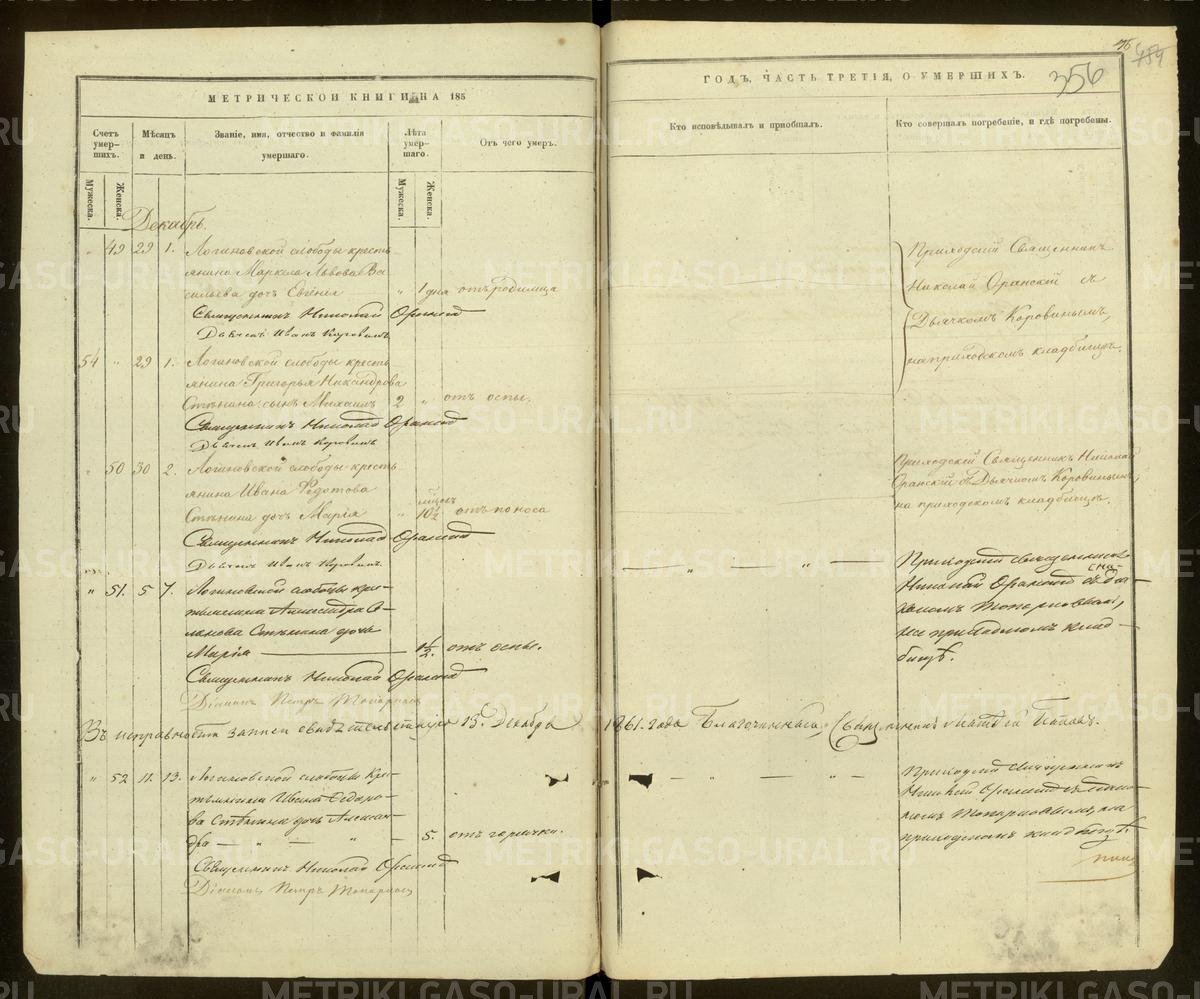 МЕТРИЧЕСКОЙ КНИГИ НА 185
ГОДЪ, ЧАСТЬ ТРЕТІЯ, О УМЕРШИХЪ.
356
Счетъ умер-
шихъ.
Мужеска.
Женска.
Мѣсяцъ
и день.
Званіе, имя, отчество и фамилія
умершаго.
Лѣта
умер-
шаго.
Мужеска.
Женска.
Отъ чего умеръ.
Кто исповѣдывалъ и пріобщалъ.
Кто совершалъ погребеніе, и гдѣ погребены.
Декабрь.
" 49 29 1. Логиновской слободы кресть
янина Маркела Львова Ва
сильева дочь Евгенія " 1 дня отъ родимца
Священникъ Николай Оранскій
Дьячекъ Иванъ Коровинъ
Приходскій Священникъ
Николай Оранскій съ
Дьячкомъ Коровинымъ,
на приходскомъ кладбищѣ.
54 " 29 1. Логиновской слободы кресть
янина Григорья Никандрова
Стѣнина сынъ Михаилъ 2 " отъ оспы.
Священникъ Николай Оранскій
Дьячекъ Иванъ Коровинъ
" 50 30 2. Логиновской слободы кресть
янина Ивана Федотова
Стѣнина дочь Марія " 10½ отъ поноса
Священникъ Николай Оранскій
Дьячекъ Иванъ Коровинъ.
Приходскій Священникъ Николай
Оранскій съ Дьячкомъ Коровинымъ,
на приходскомъ кладбищѣ.
" 51. 5 7. Логиновской слободы кре-
стьянина Александра
Стѣнина дочь
Марія — ½. отъ оспы.
Священникъ Николай Оранскій
Діаконъ Петръ Топорковъ
Приходскій Священникъ
Николай Оранскій съ діа-
кономъ Топорковымъ,
на приходскомъ клад-
бищѣ.
Въ исправности записи свидѣтельствуетъ 15. Декабря 1861. года Благочинный, Священникъ Матѳей Поповъ.
" 52 11. 13. Логиновской слободы кре-
стьянина Ивана Ѳедоро-
ва Стѣнина дочь Алексан-
дра — " — " — 5. отъ горячки.
Священникъ Николай Оранскій
Діаконъ Петръ Топорковъ
Приходскій Священникъ
Николай Оранскій съ діако-
номъ Топорковымъ, на
приходскомъ кладбищѣ.
METRIKI.GASO-URAL.RU